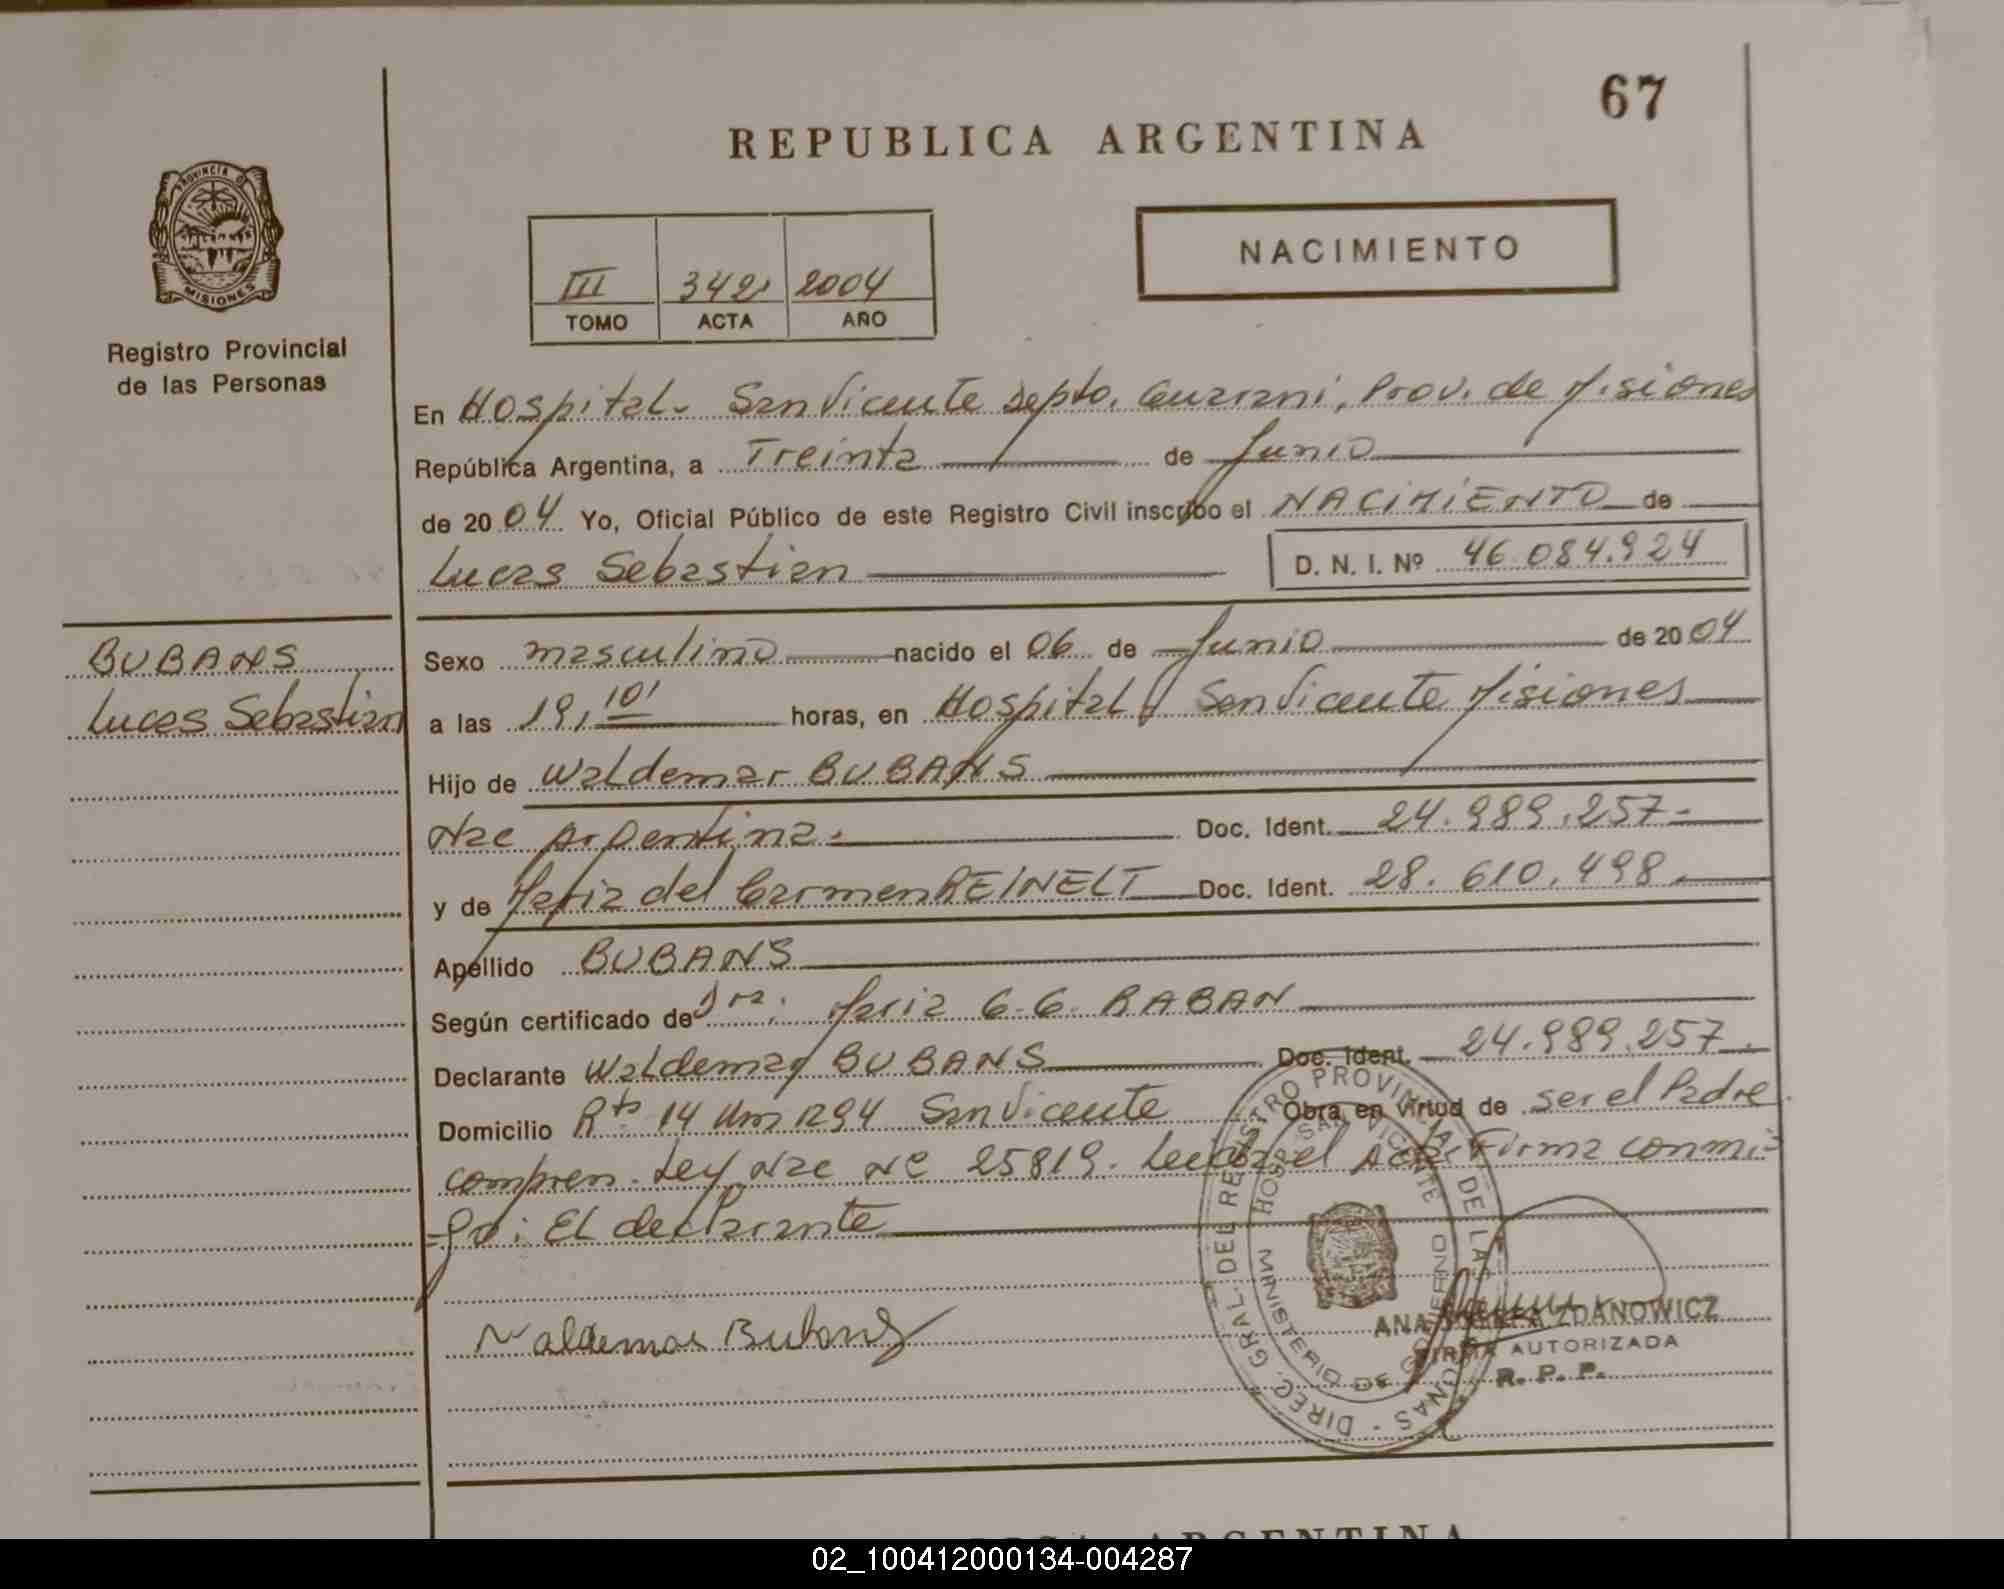 67
REPUBLICA ARGENTINA
PROVINCIA DE
MISIONES
Registro Provincial
de las Personas
NACIMIENTO
III 342 2004
TOMO ACTA AÑO
En Hospital. San Vicente Depto. Guarani, Prov. de Misiones
República Argentina, a Treinta de Junio
de 2004 Yo, Oficial Público de este Registro Civil inscribo el NACIMIENTO de
Lucas Sebastian D. N. I. Nº 46.084.924
BUBANS
Lucas Sebastian
Sexo masculino nacido el 06 de Junio de 2004
a las 19,10' horas, en Hospital San Vicente Misiones
Hijo de Waldemar BUBANS
Nac Argentina. Doc. Ident. 24.989.257-
y de Maria del Carmen REINELT Doc. Ident. 28.610.498.
Apellido BUBANS
Según certificado de Dra. Maria G. G. RABAN
Declarante Waldemar BUBANS Doc. Ident. 24.989.257.
Domicilio Rta 14 Km 1294 San Vicente Obra en virtud de ser el Padre.
compren. Ley Nac Nº 25819. Leida el Acta Firma conmi-
go: El declarante
Waldemar Bubans
DIREC. GRAL. DEL REGISTRO PROVINCIAL DE LAS PERSONAS -
HOSP. SAN VICENTE
MINISTERIO DE GOBIERNO
ANA ZDANOWICZ
FIRMA AUTORIZADA
R. P. P.
ARGENTINA
02_100412000134-004287